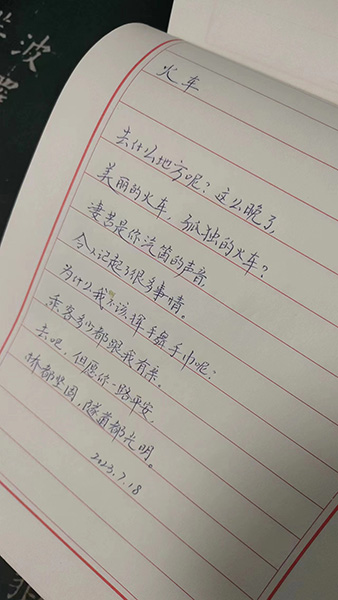 波
火车
去什么地方呢？这么晚了，
美丽的火车，孤独的火车？
凄苦是你汽笛的声音，
令人记起了很多事情。
为什么我不该挥舞手巾呢？
乘客多少都跟我有亲。
去吧，但愿你一路平安，
桥都坚固，隧道都光明。
2023.7.18